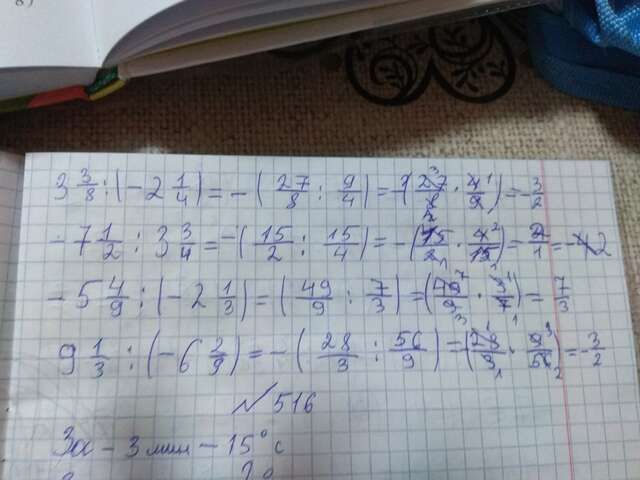 8)
3 3/8 : (-2 1/4) = - (27/8 : 9/4) = - (27/8 · 4/9) = - 3/2
- 7 1/2 : 3 3/4 = - (15/2 : 15/4) = - (15/2 · 4/15) = 2/1 = - 2
- 5 4/9 : (-2 1/3) = (49/9 : 7/3) = (49/9 · 3/7) = 7/3
9 1/3 : (-6 2/9) = - (28/3 : 56/9) = (28/3 · 9/56) = - 3/2
№ 516
За - 3 мин - 15° с